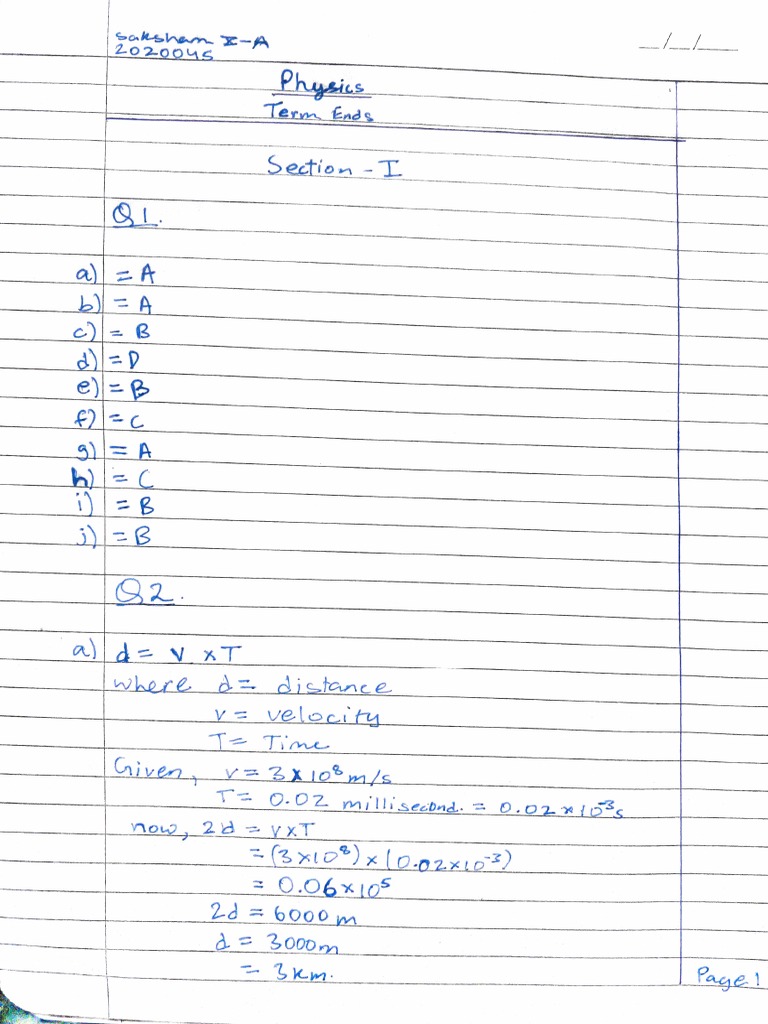 Saksham X-A
2020045
__/__/__
Physics
Term Ends
Section - I
Q1.
a) = A
b) = A
c) = B
d) = D
e) = B
f) = C
g) = A
h) = C
i) = B
j) = B
Q2.
a) d = v × T
where d = distance
v = velocity
T = Time
Given, v = 3 × 10⁸ m/s
T = 0.02 millisecond. = 0.02 × 10⁻³s
now, 2d = v×T
= (3×10⁸) × (0.02×10⁻³)
= 0.06×10⁵
2d = 6000 m
d = 3000m
= 3 km.
Page 1